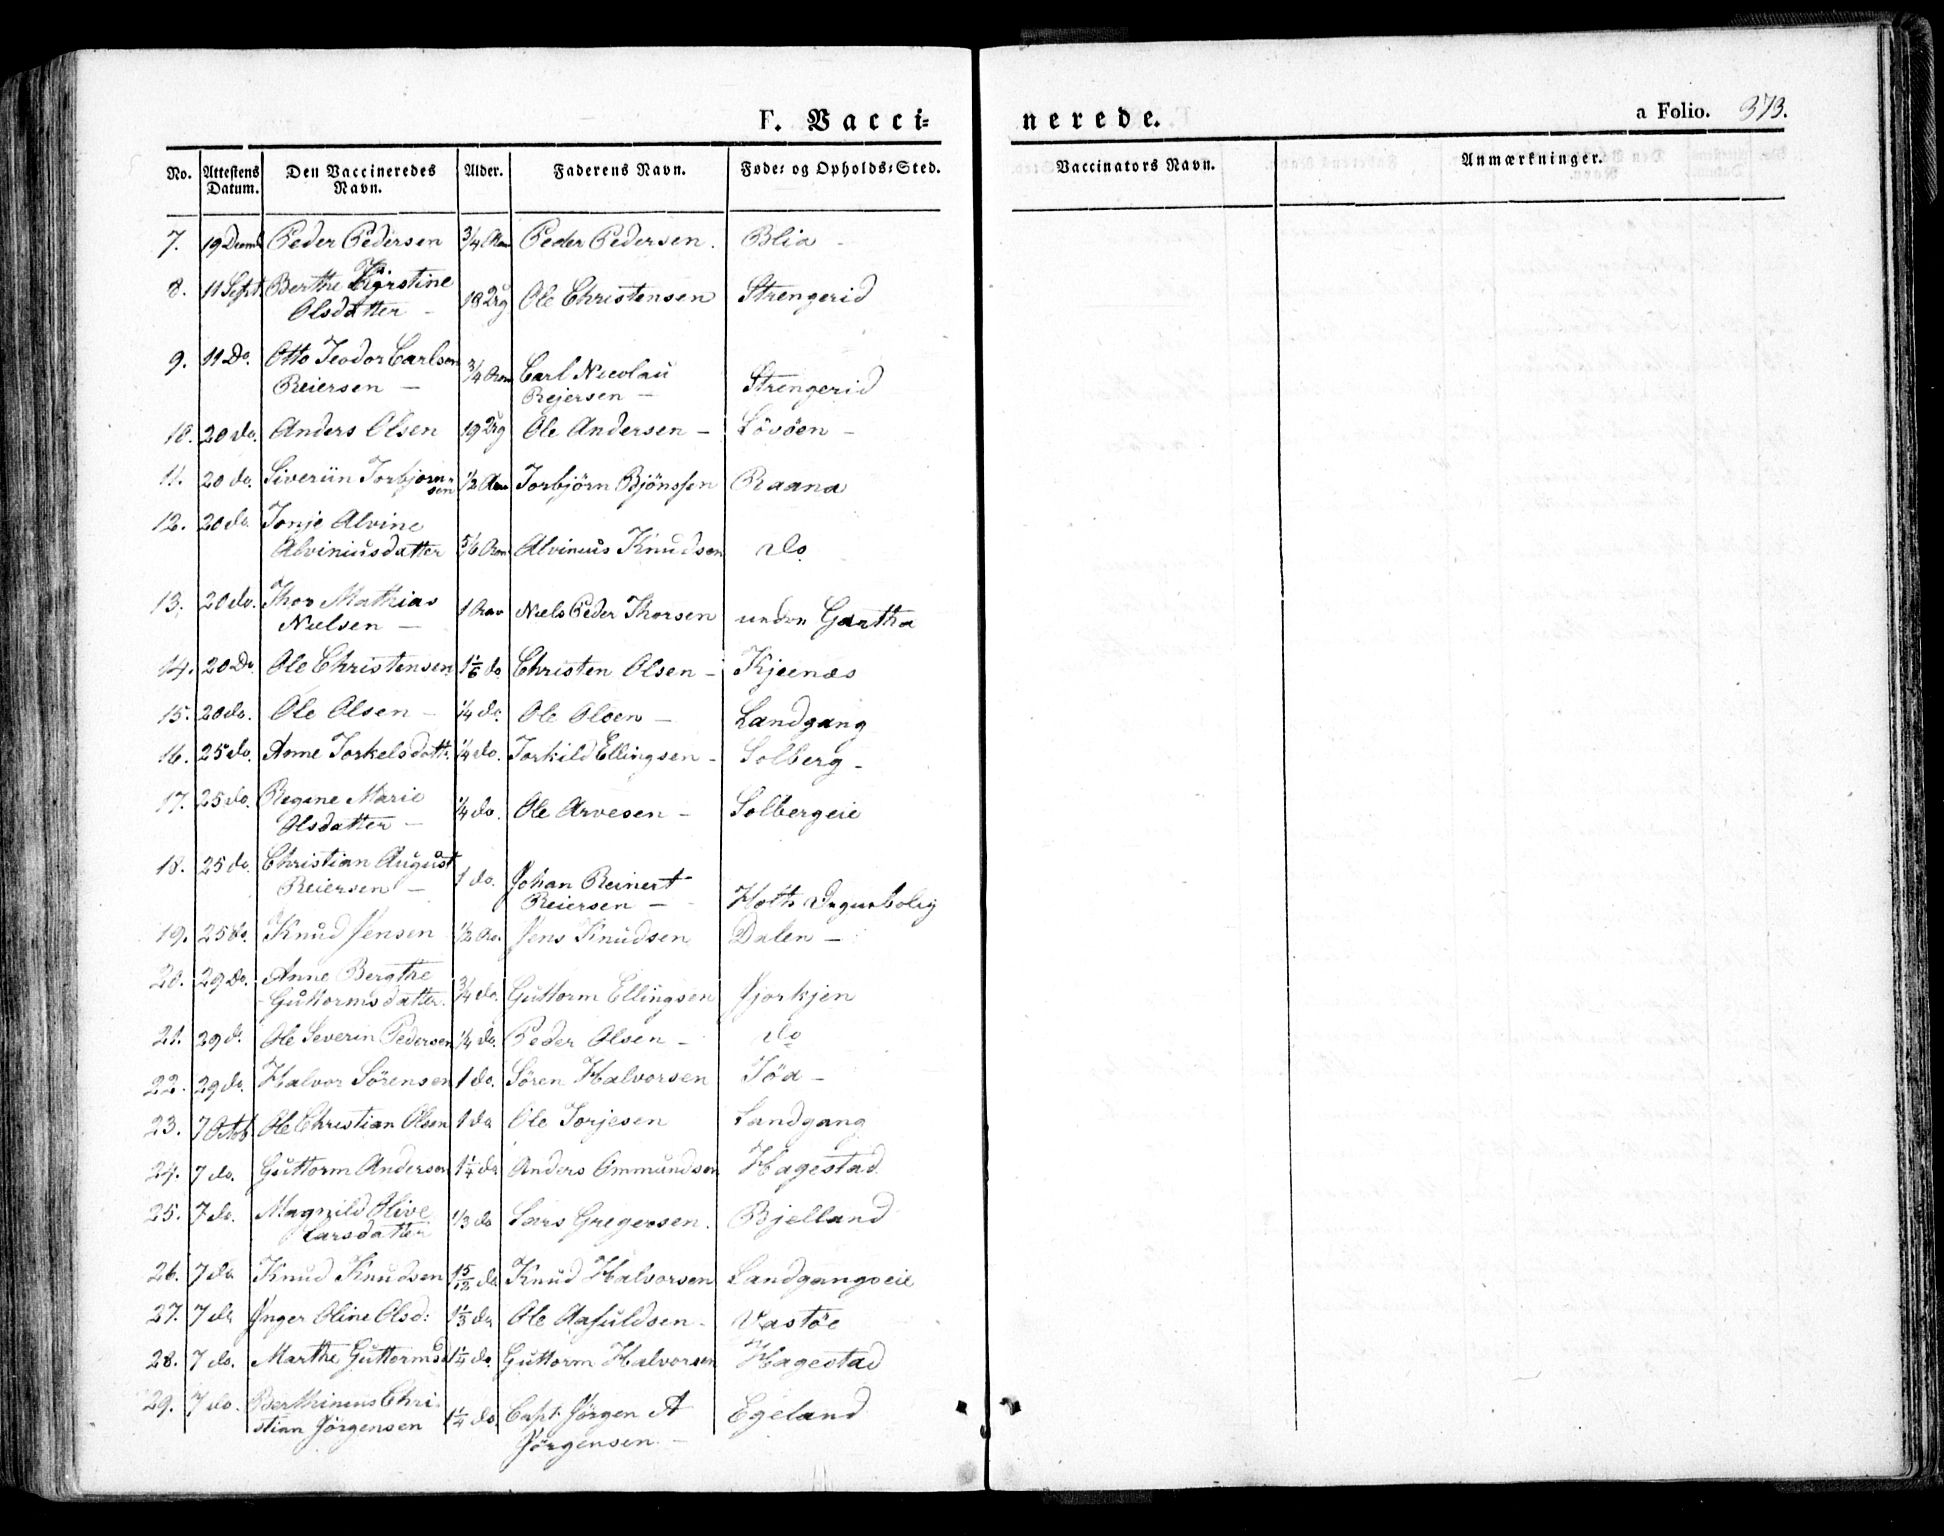 F. Vacci=
nerede.
a Folio. 373.
No. Attestens Datum. Den Vaccineredes Navn. Alder. Faderens Navn. Føde= og Opholds=Sted. Vaccinators Navn. Anmærkninger.
7. 19 Peder Pedersen 3/4 Peder Pedersen. Blia -
8. 11 Sept. Berthe Kirstine
Olsdatter - 18 Ole Christensen Strengerid
9. 11 Do. Otto Teodor Carlsen
Reiersen - 3/4 Carl Nicolau
Rejersen - Strengerid
10. 20 do. Anders Olsen 19 Ole Andersen - Lövöen -
11. 20 do. Siveriin Torbjorn-
sen 1/2 Aar Torbjörn Bjönssen Raana
12. 20 do. Tonje Alvine
Alviniusdatter 5/6 Alvinius Knudsen do
13. 20 do. Thor Mathias
Nielsen - 1 Aar Niels Peder Thorsen under Gartha
14. 20 Do Ole Christensen 1 1/6 do Christen Olsen - Kjeenæs
15. 20 do. Ole Olsen - 1/4 do. Ole Olsen - Landgang
16. 25 do. Anne Torkelsdatt. 1/4 do. Torkild Ellingsen - Solberg -
17. 25 do. Regine Marie
Olsdatter - 1/4 do. Ole Arvesen - Solbergeie
18. 25 do. Christian August
Reiersen - 1 do. Johan Reinert
Reiersen - Holth
19. 25 do. Knud Jensen 1/2 Jens Knudsen Dalen -
20. 29 Do. Anne Bergthe
Guttormsdatter. 3/4 do. Guttorm Ellingsen Fjorkjen
21. 29 d. Ole Severin Pedersen 1/4 do. Peder Olsen - do
22. 29 do. Halvor Sörensen 1 do. Sören Halvorsen Töa -
23. 7 Octob. Ole Christian Olsen 1 do Ole Torjesen Landgang
24. 7 do. Guttorm Andersen 1 1/4 do Anders Ommundsen Hagestad
25. 7 do. Magnild Olive
Larsdatter 1/3 do Lars Gregersen. Bjelland
26. 7 do Knud Knudsen 15/12 do Knud Halvorsen Landgangseie
27. 7 do Ynger Oline Olsd: 1 1/3 do Ole Aafuldsen - Vastöe
28. 7 do. Marthe Guttormsd 1 1/4 do. Guttorm Halvorsen Hagestad
29. 7 do. Berthinius Chri-
stian Jörgensen 1 1/4 do. Capt. Jörgen A
Jörgensen - Egeland